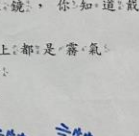 鏡，你知道戴
上都是霧氣